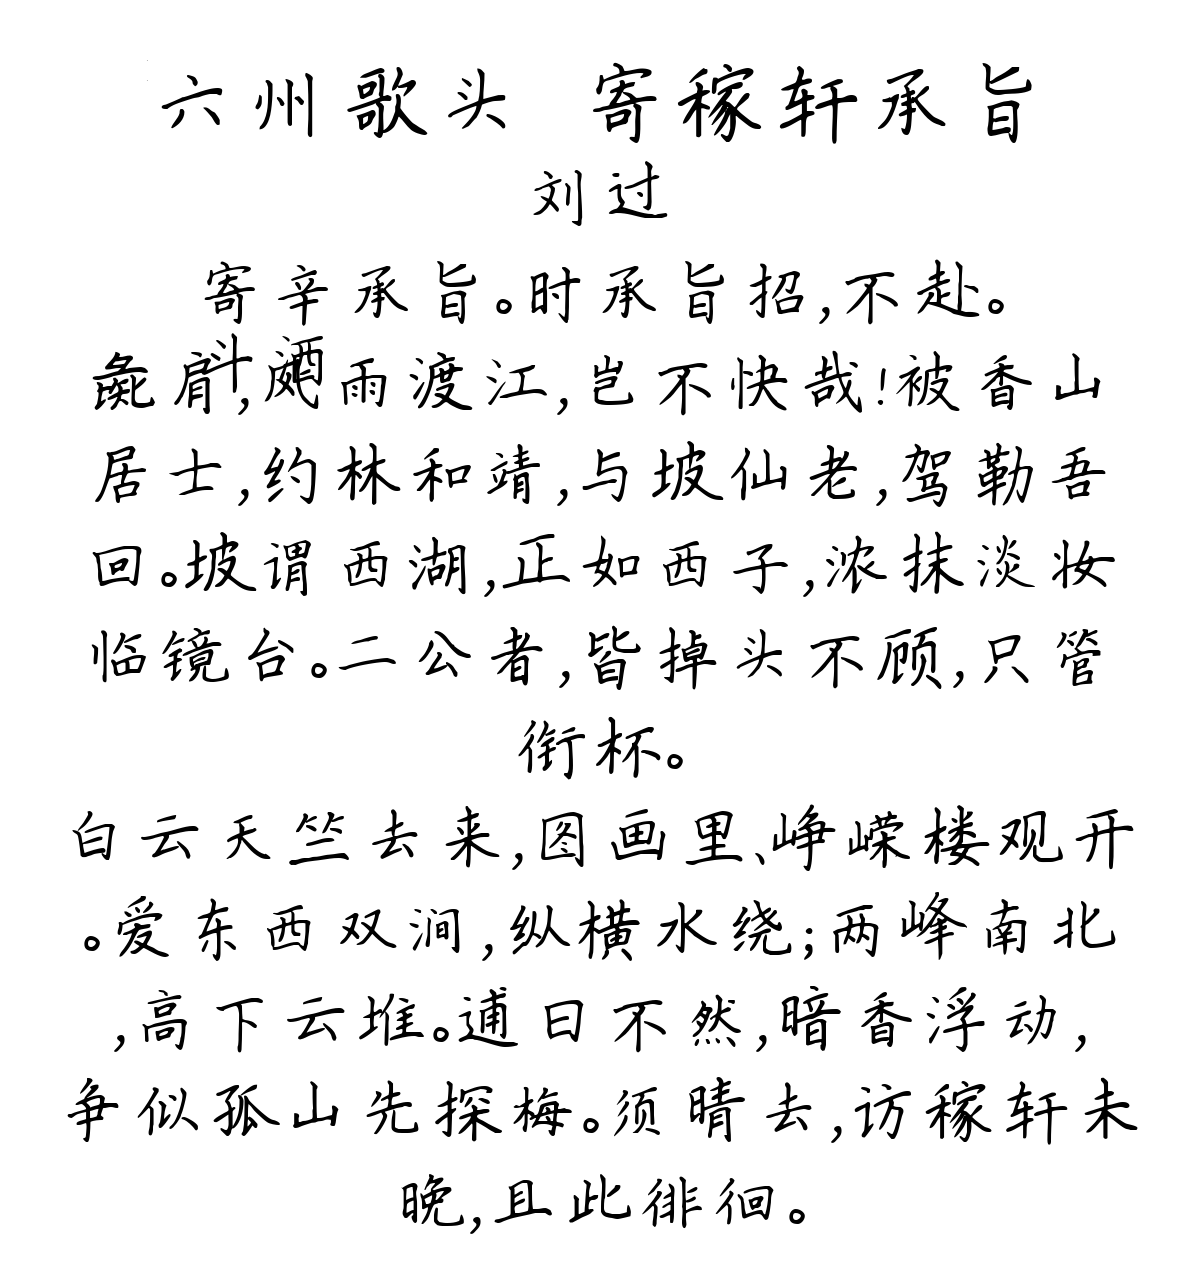 六州歌头 寄稼轩承旨
刘过
寄辛承旨。时承旨招,不赴。
斗酒
彘肩,风雨渡江,岂不快哉!被香山
居士,约林和靖,与坡仙老,驾勒吾
回。坡谓西湖,正如西子,浓抹淡妆
临镜台。二公者,皆掉头不顾,只管
衔杯。
白云天竺去来,图画里、峥嵘楼观开
。爱东西双涧,纵横水绕;两峰南北
,高下云堆。逋曰不然,暗香浮动,
争似孤山先探梅。须晴去,访稼轩未
晚,且此徘徊。